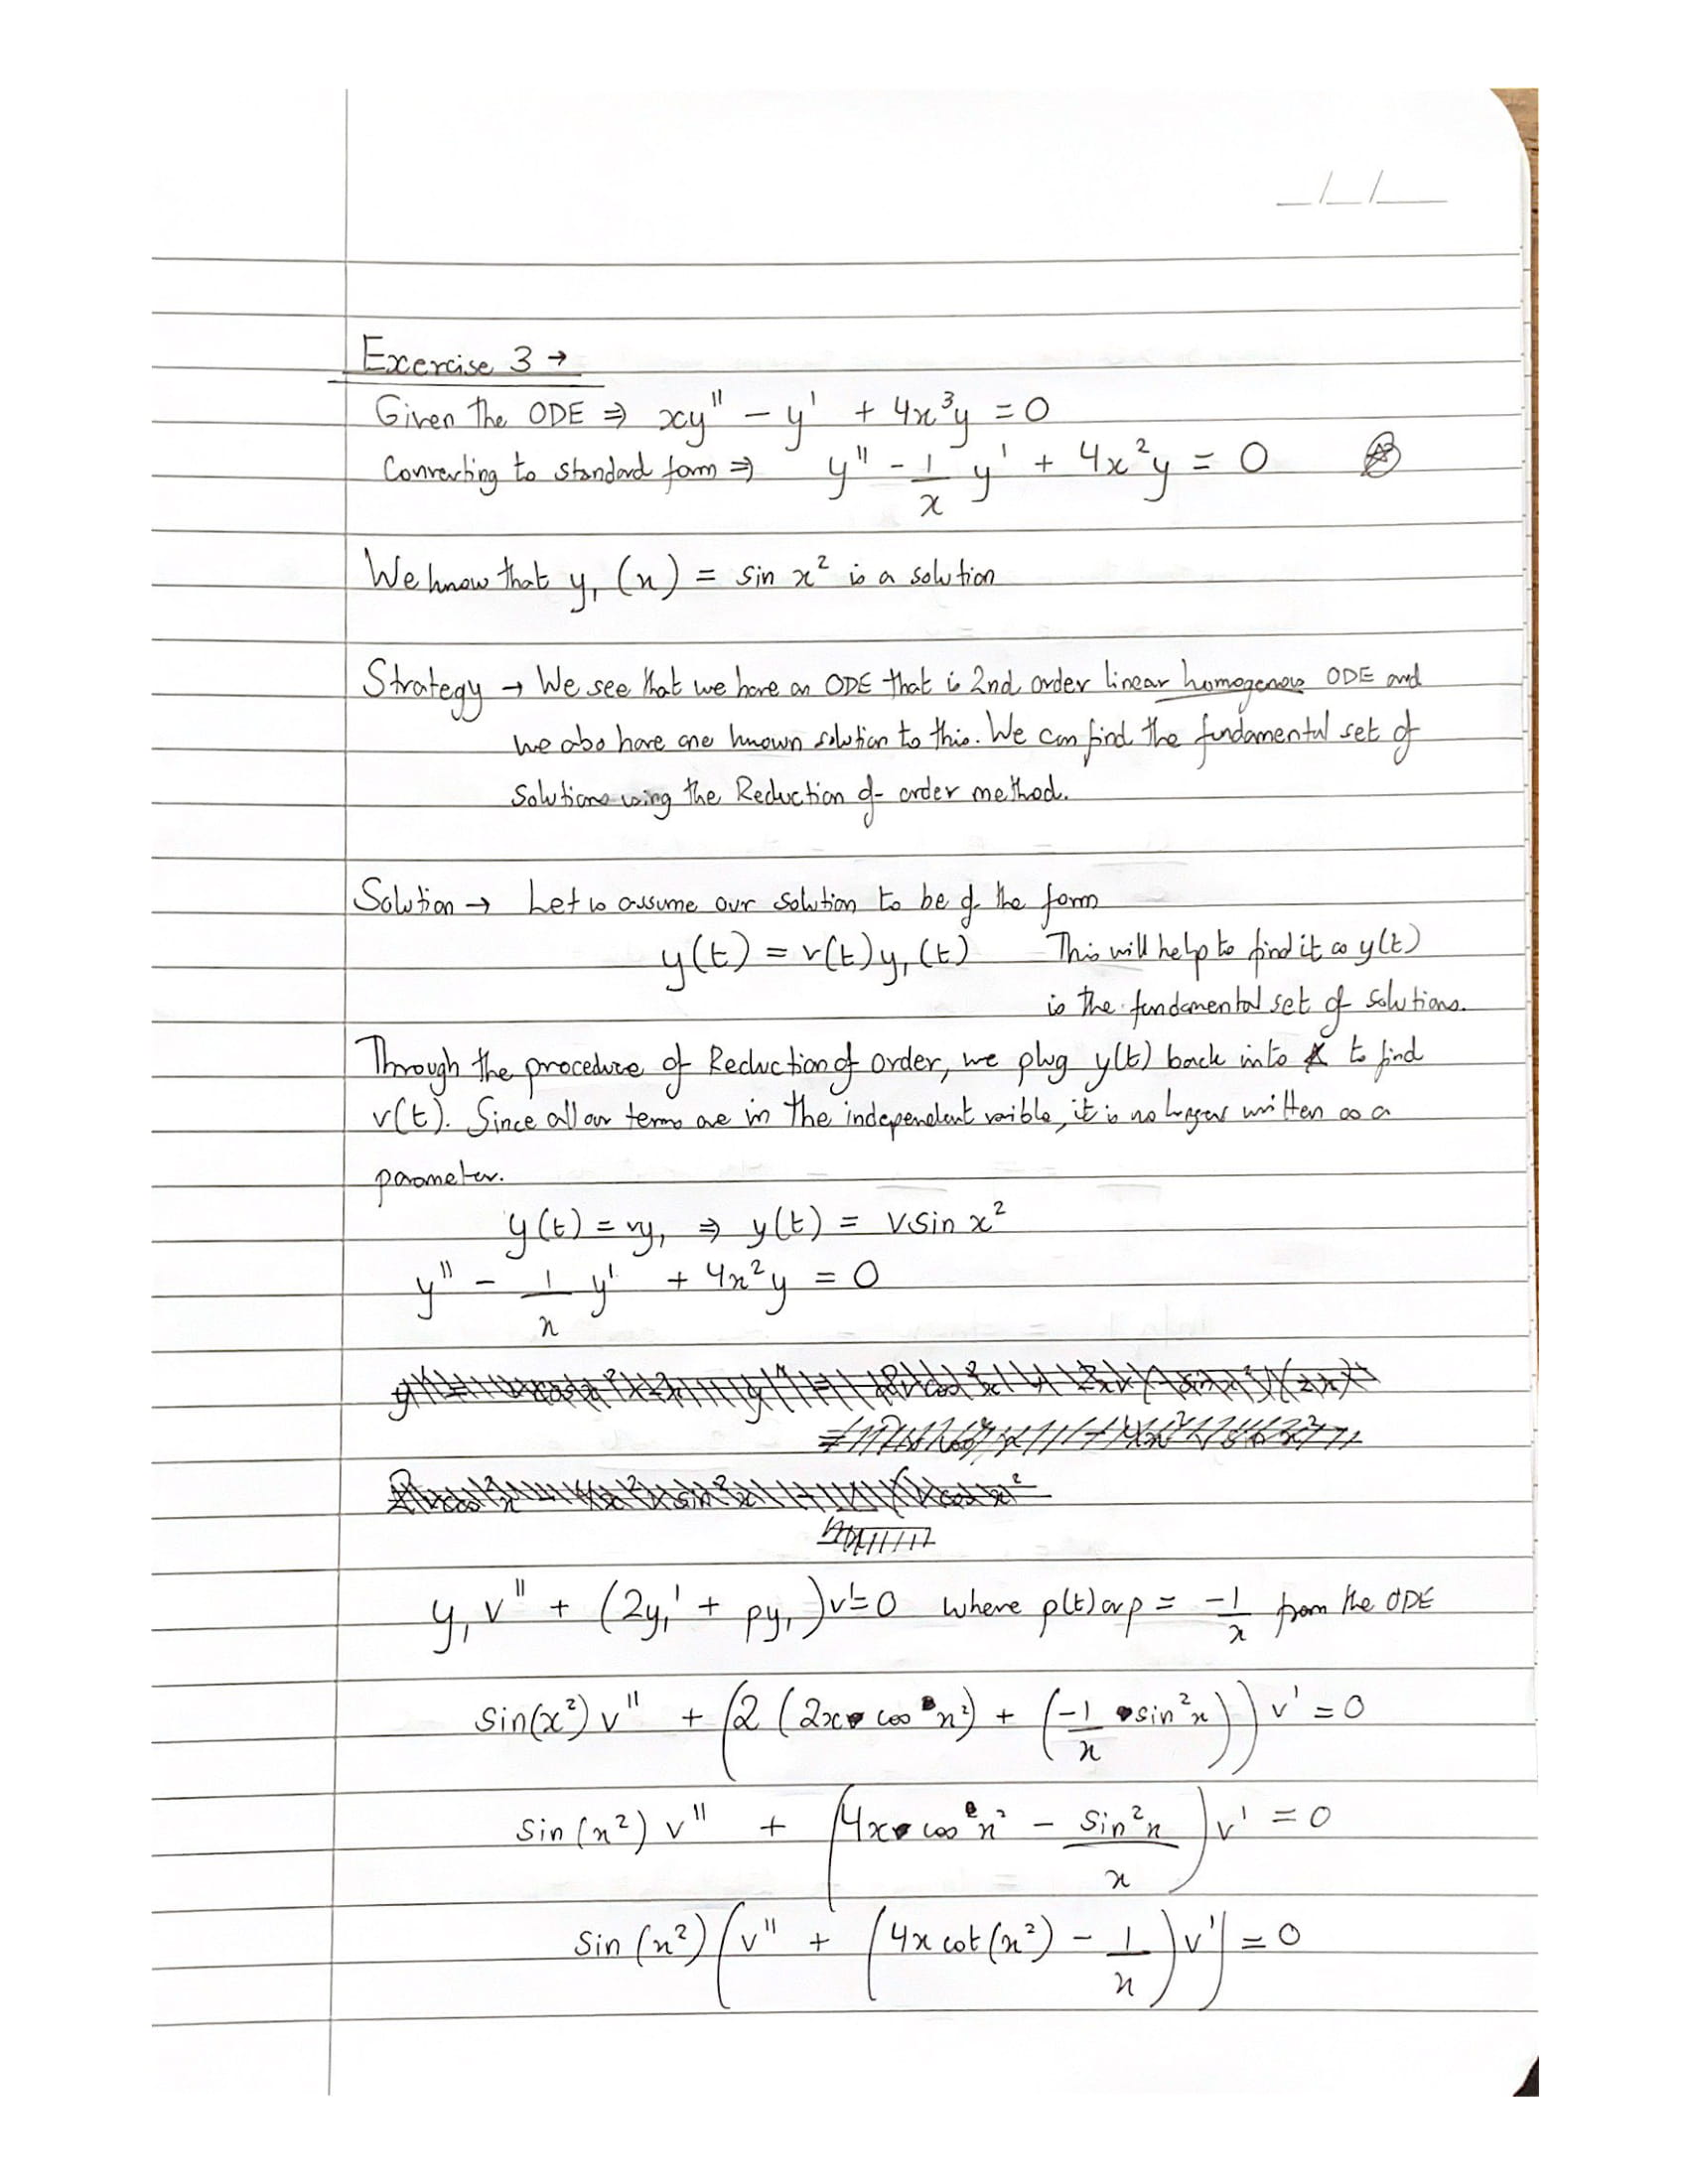 _/_/_
Exercise 3 →
Given the ODE ⇒ xy'' − y' + 4x³y = 0
Converting to standard form ⇒ y'' − 1/x y' + 4x²y = 0
We know that y₁(x) = sin x² is a solution
Strategy → We see that we have an ODE that is 2nd order linear homogenous ODE and
we also have one known solution to this. We can find the fundamental set of
solutions using the Reduction of order method.
Solution → Let us assume our solution to be of the form
y(t) = v(t)y₁(t) This will help to find it as y(t)
is the fundamental set of solutions.
Through the procedure of Reduction of order, we plug y(t) back into to find
v(t). Since all our terms are in the independent varible, it is no longer written as a
parameter.
y(t) = vy₁ ⇒ y(t) = v sin x²
y'' − 1/x y' + 4x²y = 0
y₁v'' + (2y₁' + py₁)v' = 0 where p(t) or p = −1/x from the ODE
sin(x²) v'' + (2(2x cos x²) + (−1/x sin²x)) v' = 0
sin(x²) v'' + (4x cos x² − sin²x/x) v' = 0
sin(x²)(v'' + (4x cot(x²) − 1/x)v') = 0